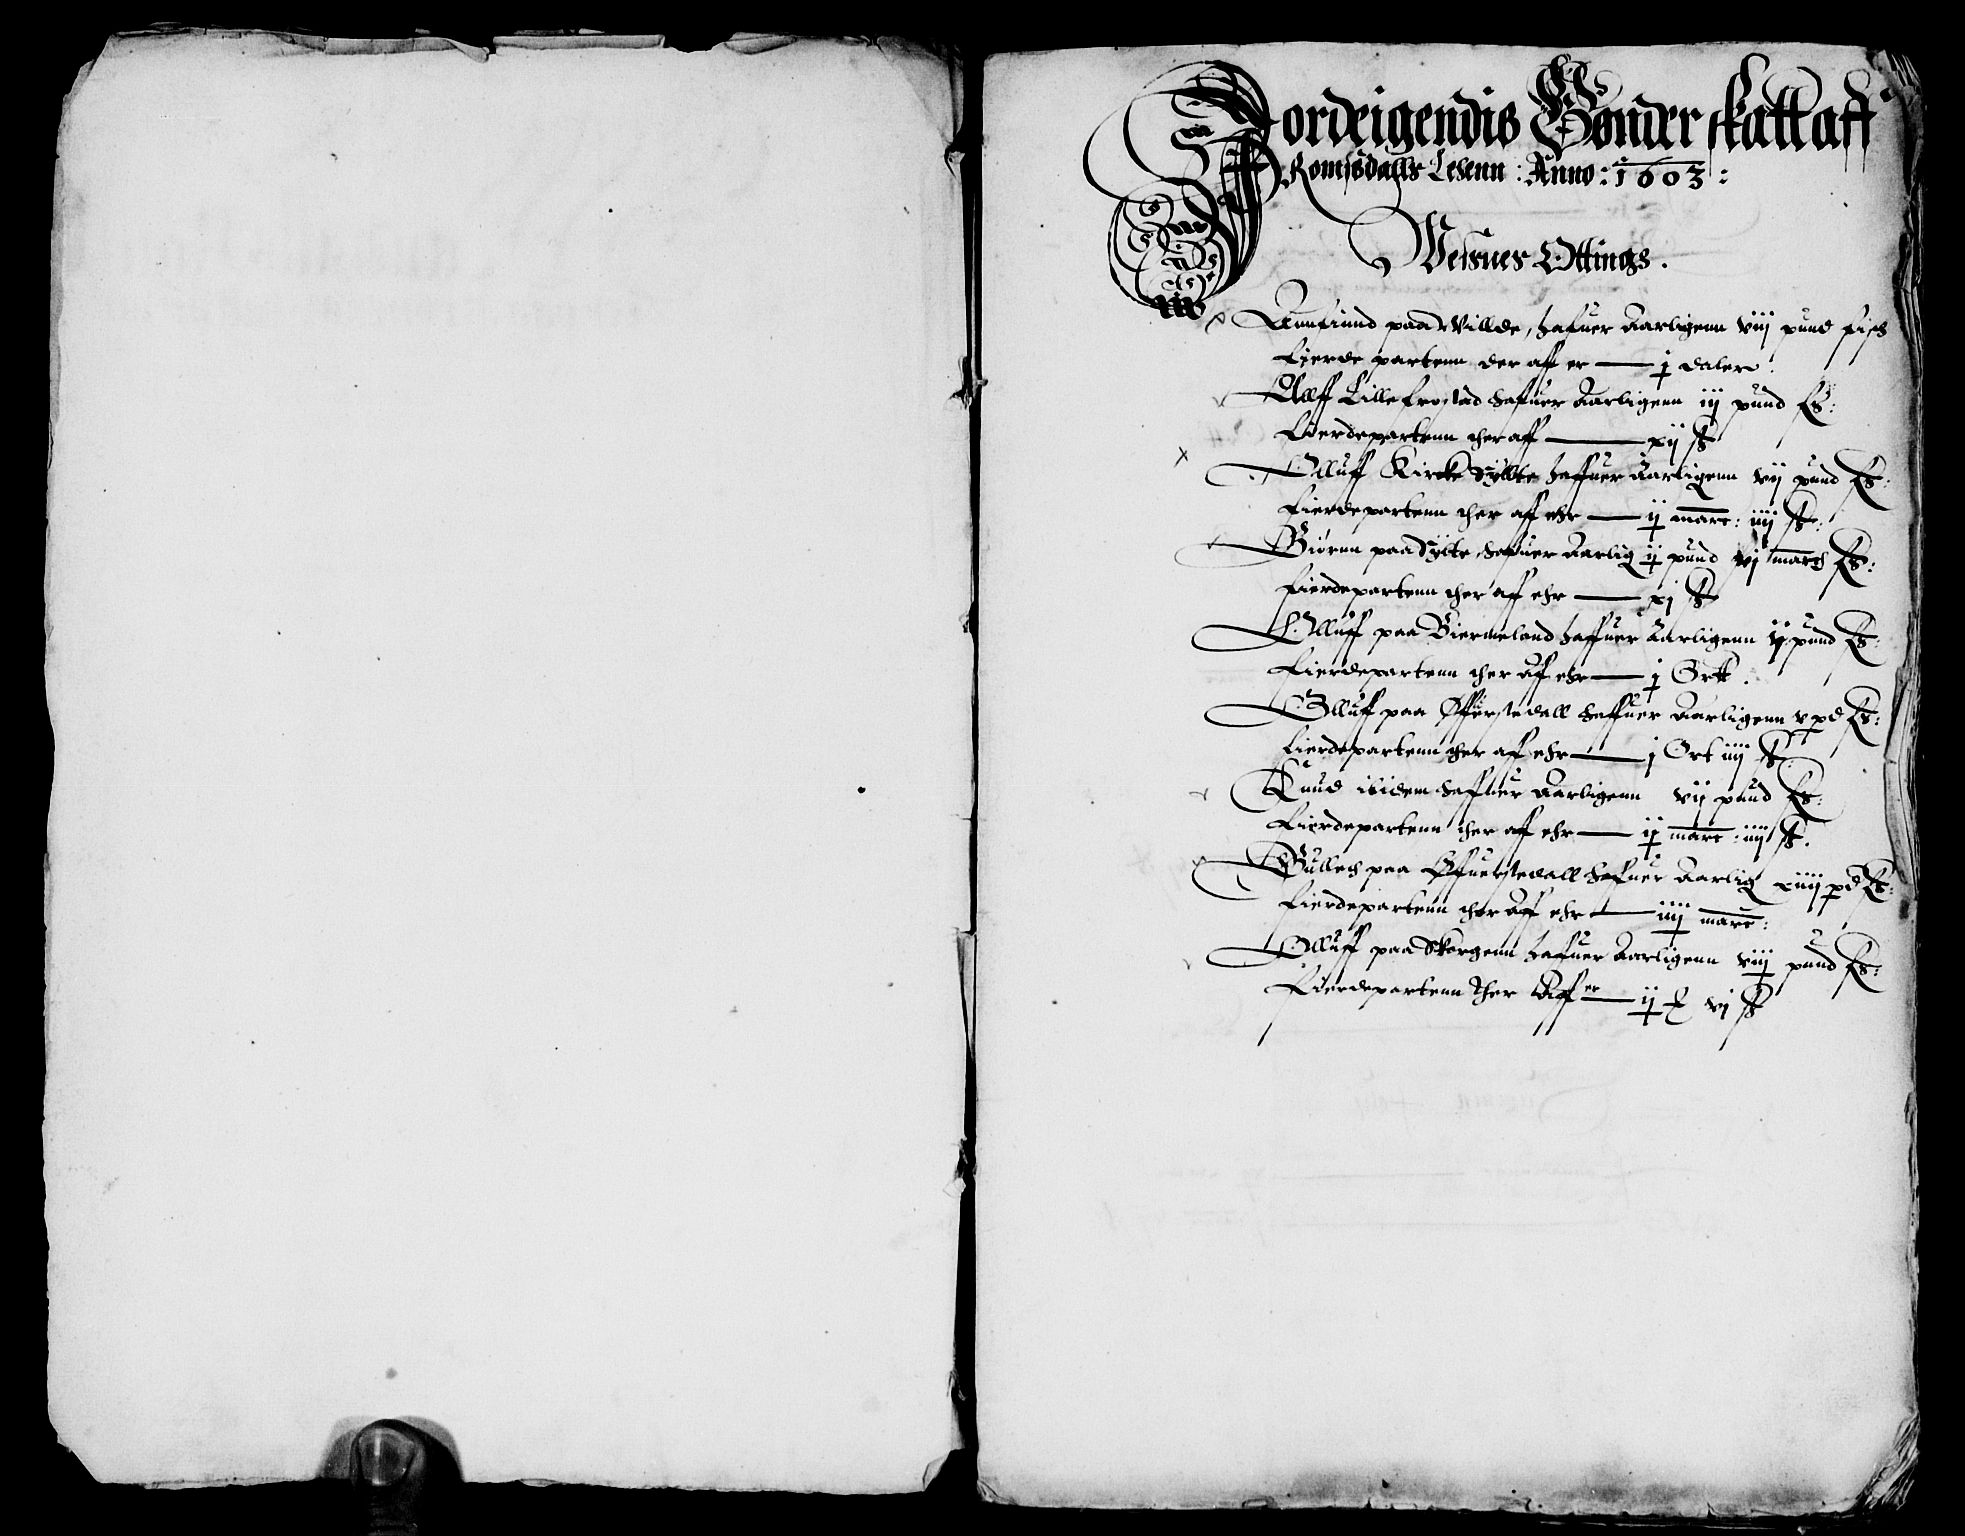 Jordeigendis Bønder skatt aff
Romsdalls Lehenn : Anno : 1603 :
Vesnes Ottings .
Aunfiund paa Villde, hafuer Aarligenn viij pund fisch
Fierde partenn der aff er — j daler .
Alff Lillefrostad hafuer Aarligenn iij pund fs :
Fierdepartenn ther aff — xij sk
Olluff Kircke Syllte haffuer Aarligenn vij pund fs :
Fierdepartenn ther aff ehr — ij marc : iiij sk :
Biørnn paa Sylte, hafuer Aarlig ij pund vj march fs :
Fierdepartenn ther aff ehr — xj sk
Olluff paa Biermeland haffuer Aarligenn ij pund fs :
Fierdepartenn ther aff ehr — j Ortt .
Olluff paa Øfuerstedall haffuer Aarligenn v pd fs :
Fierdepartenn ther aff ehr — j Ort iiij sk
Knud ibidem haffuer Aarligenn vij pund fs :
Fierdepartenn ther aff ehr — ij marc : iiij sk .
Gullech paa Øfuerstedall hafuer Aarlig xiiij pd fs :
Fierdepartenn ther Aff ehr — iiij marc :
Olluff paa Skorgenn haffuer Aarligenn viij pund fs :
Fierdepartenn ther Aff er — ij vj sk